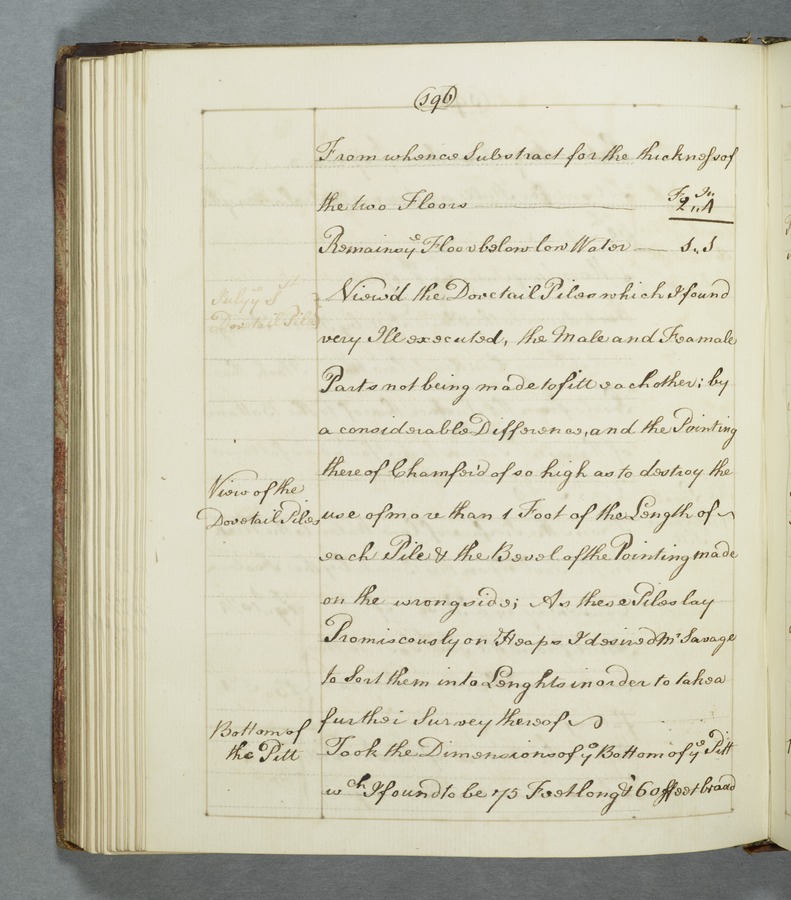 196
From whence Substract for the thickness of
F. In.
the two Floors 2,,4
Remains ye Floor below low Water
July ye
Dovetail Piles
View'd the Dovetail Piles which I found
very Ill executed, the Male and Feamale
Parts not being made to fitt each other; by
a considerable Difference, and the Pointing
thereof Chamfer'd of so high as to destroy the
View of the
Dovetail Piles
use of more than 1 Foot of the Length of
each Pile & the Bevel of the Pointing made
on the wrong side; As these Piles lay
Promiscously on Heaps I desired Mr Savage
to Sort them into Lenghts in order to take a
further Survey thereof
Bottom of
the Pitt
Took the Dimensions of ye Bottom of ye Pitt
wch I found to be 75 Feet long & 60 ffeet broad